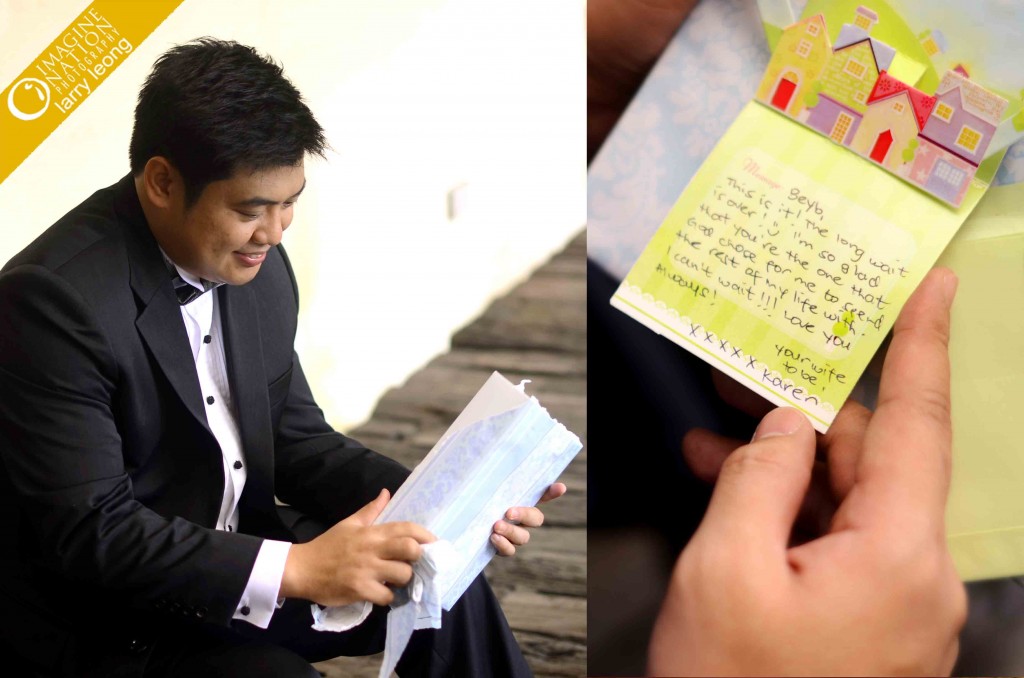 IMAGINE
NATION
PHOTOGRAPHY
larry leong
Message
Beyb,
This is it! The long wait
is over! I'm so glad
that you're the one that
God chose for me to spend
the rest of my life with.
I can't wait!!! Love you
Always!
your wife
to be,
xxxxx Karen